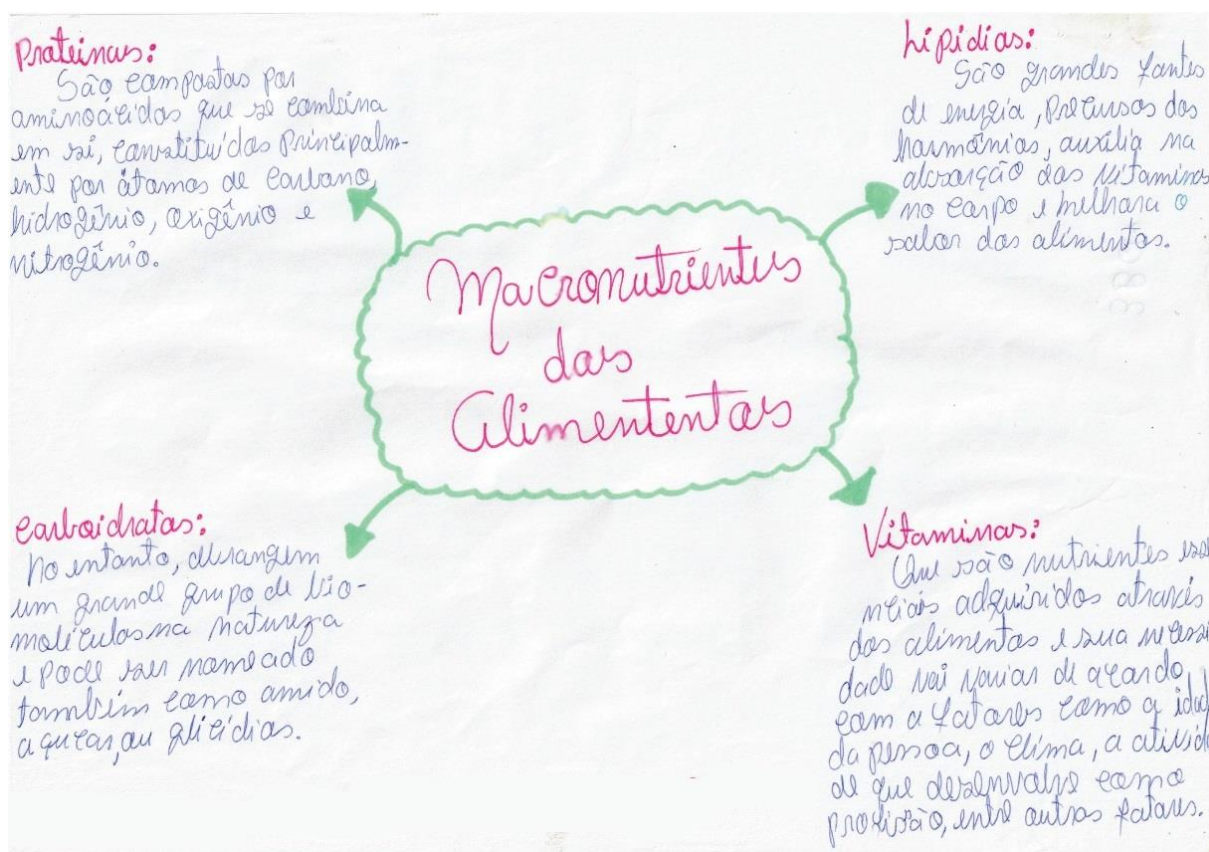 Proteínas:
São compostas por
aminoácidos que se combina
em si, constituídas principalm-
ente por átomos de carbono,
hidrogênio, oxigênio e
nitrogênio.
Lipídios:
São grandes fontes
de energia, precursos dos
harmônios, auxilia na
absorção das vitaminas
no corpo e melhora o
sabor dos alimentos.
Macronutrientes
dos
Alimententos
Carboidratos:
No entanto, abrangem
um grande grupo de bio-
moléculas na natureza
e pode ser nomeado
também como amido,
açucar, ou glicídios.
Vitaminas:
Que são nutrientes esse
nciais adquiridos através
dos alimentos e sua necessi
dade vai variar de acordo
com a fatores como a idad
da pessoa, o clima, a ativida
de que desenvolve como
profissão, entre outros fatores.